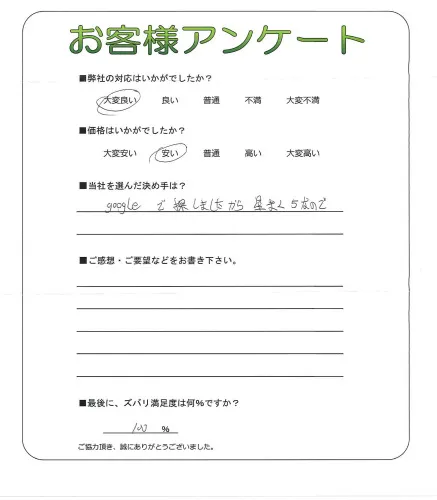 お客様アンケート
■弊社の対応はいかがでしたか？
大変良い 良い 普通 不満 大変不満
■価格はいかがでしたか？
大変安い 安い 普通 高い 大変高い
■当社を選んだ決め手は？
google で 線しましたから 星まく5なので
■ご感想・ご要望などをお書き下さい。
■最後に、ズバリ満足度は何％ですか？
100 ％
ご協力頂き、誠にありがとうございました。